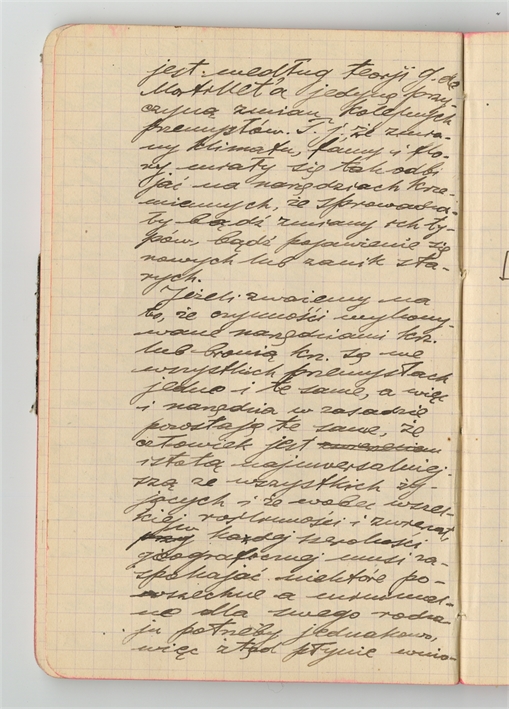 jest według teorji G. de
Mortillet'a jedyną przy-
czyną zmian kolejnych
przemysłów. T. j. że zmia-
ny klimatu, fauny i flo-
ry miały się tak odbi
jać na narzędziach krze-
miennych, że sprowadza-
ły bądź zmiany ich ty-
pów, bądź pojawienie się
nowych lub zanik sta-
rych.
Jeżeli zważemy na
to, że czynności wykony-
wane narzędziami krz.
lub bronią krz. są we
wszystkich przemysłach
jedne i te same, a więc
i narzędzia w zasadzie
pozostają te same, że
człowiek jest
istotą najuniwersalniej-
szą ze wszystkich ży-
jących i że wobec wszel-
kiej roślinności i zwierząt
w każdej szerokości
geograficznej musi za-
spokajać niektóre po-
wszechne a
ne dla swego rodza
ju potrzeby jednakowo,
więc stąd płynie wnio-